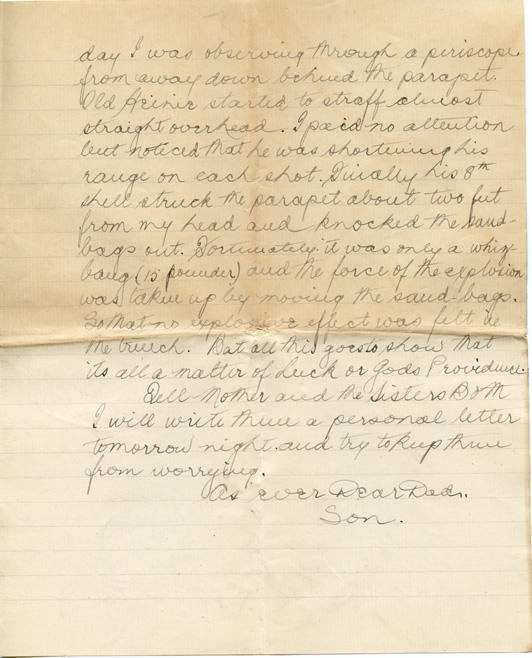 day I was observing through a periscope
from away down behind the parapet.
Old Heinie started to straff almost
straight overhead. I paid no attention
but noticed that he was shortening his
range on each shot. Finally his 8th
shell struck the parapet about two feet
from my head and knocked the sand-
bags out. Fortunately it was only a whiz-
bang (15 pounder) and the force of the explosion
was taken up by moving the sand-bags.
So that no explosive effect was felt in
the trench. But all this goes to show that
its all a matter of Luck or Gods Providence.
Tell Mother and the Sisters Both
I will write them a personal letter
tomorrow night and try to keep them
from worrying.
As ever Dear Dad.
Son.